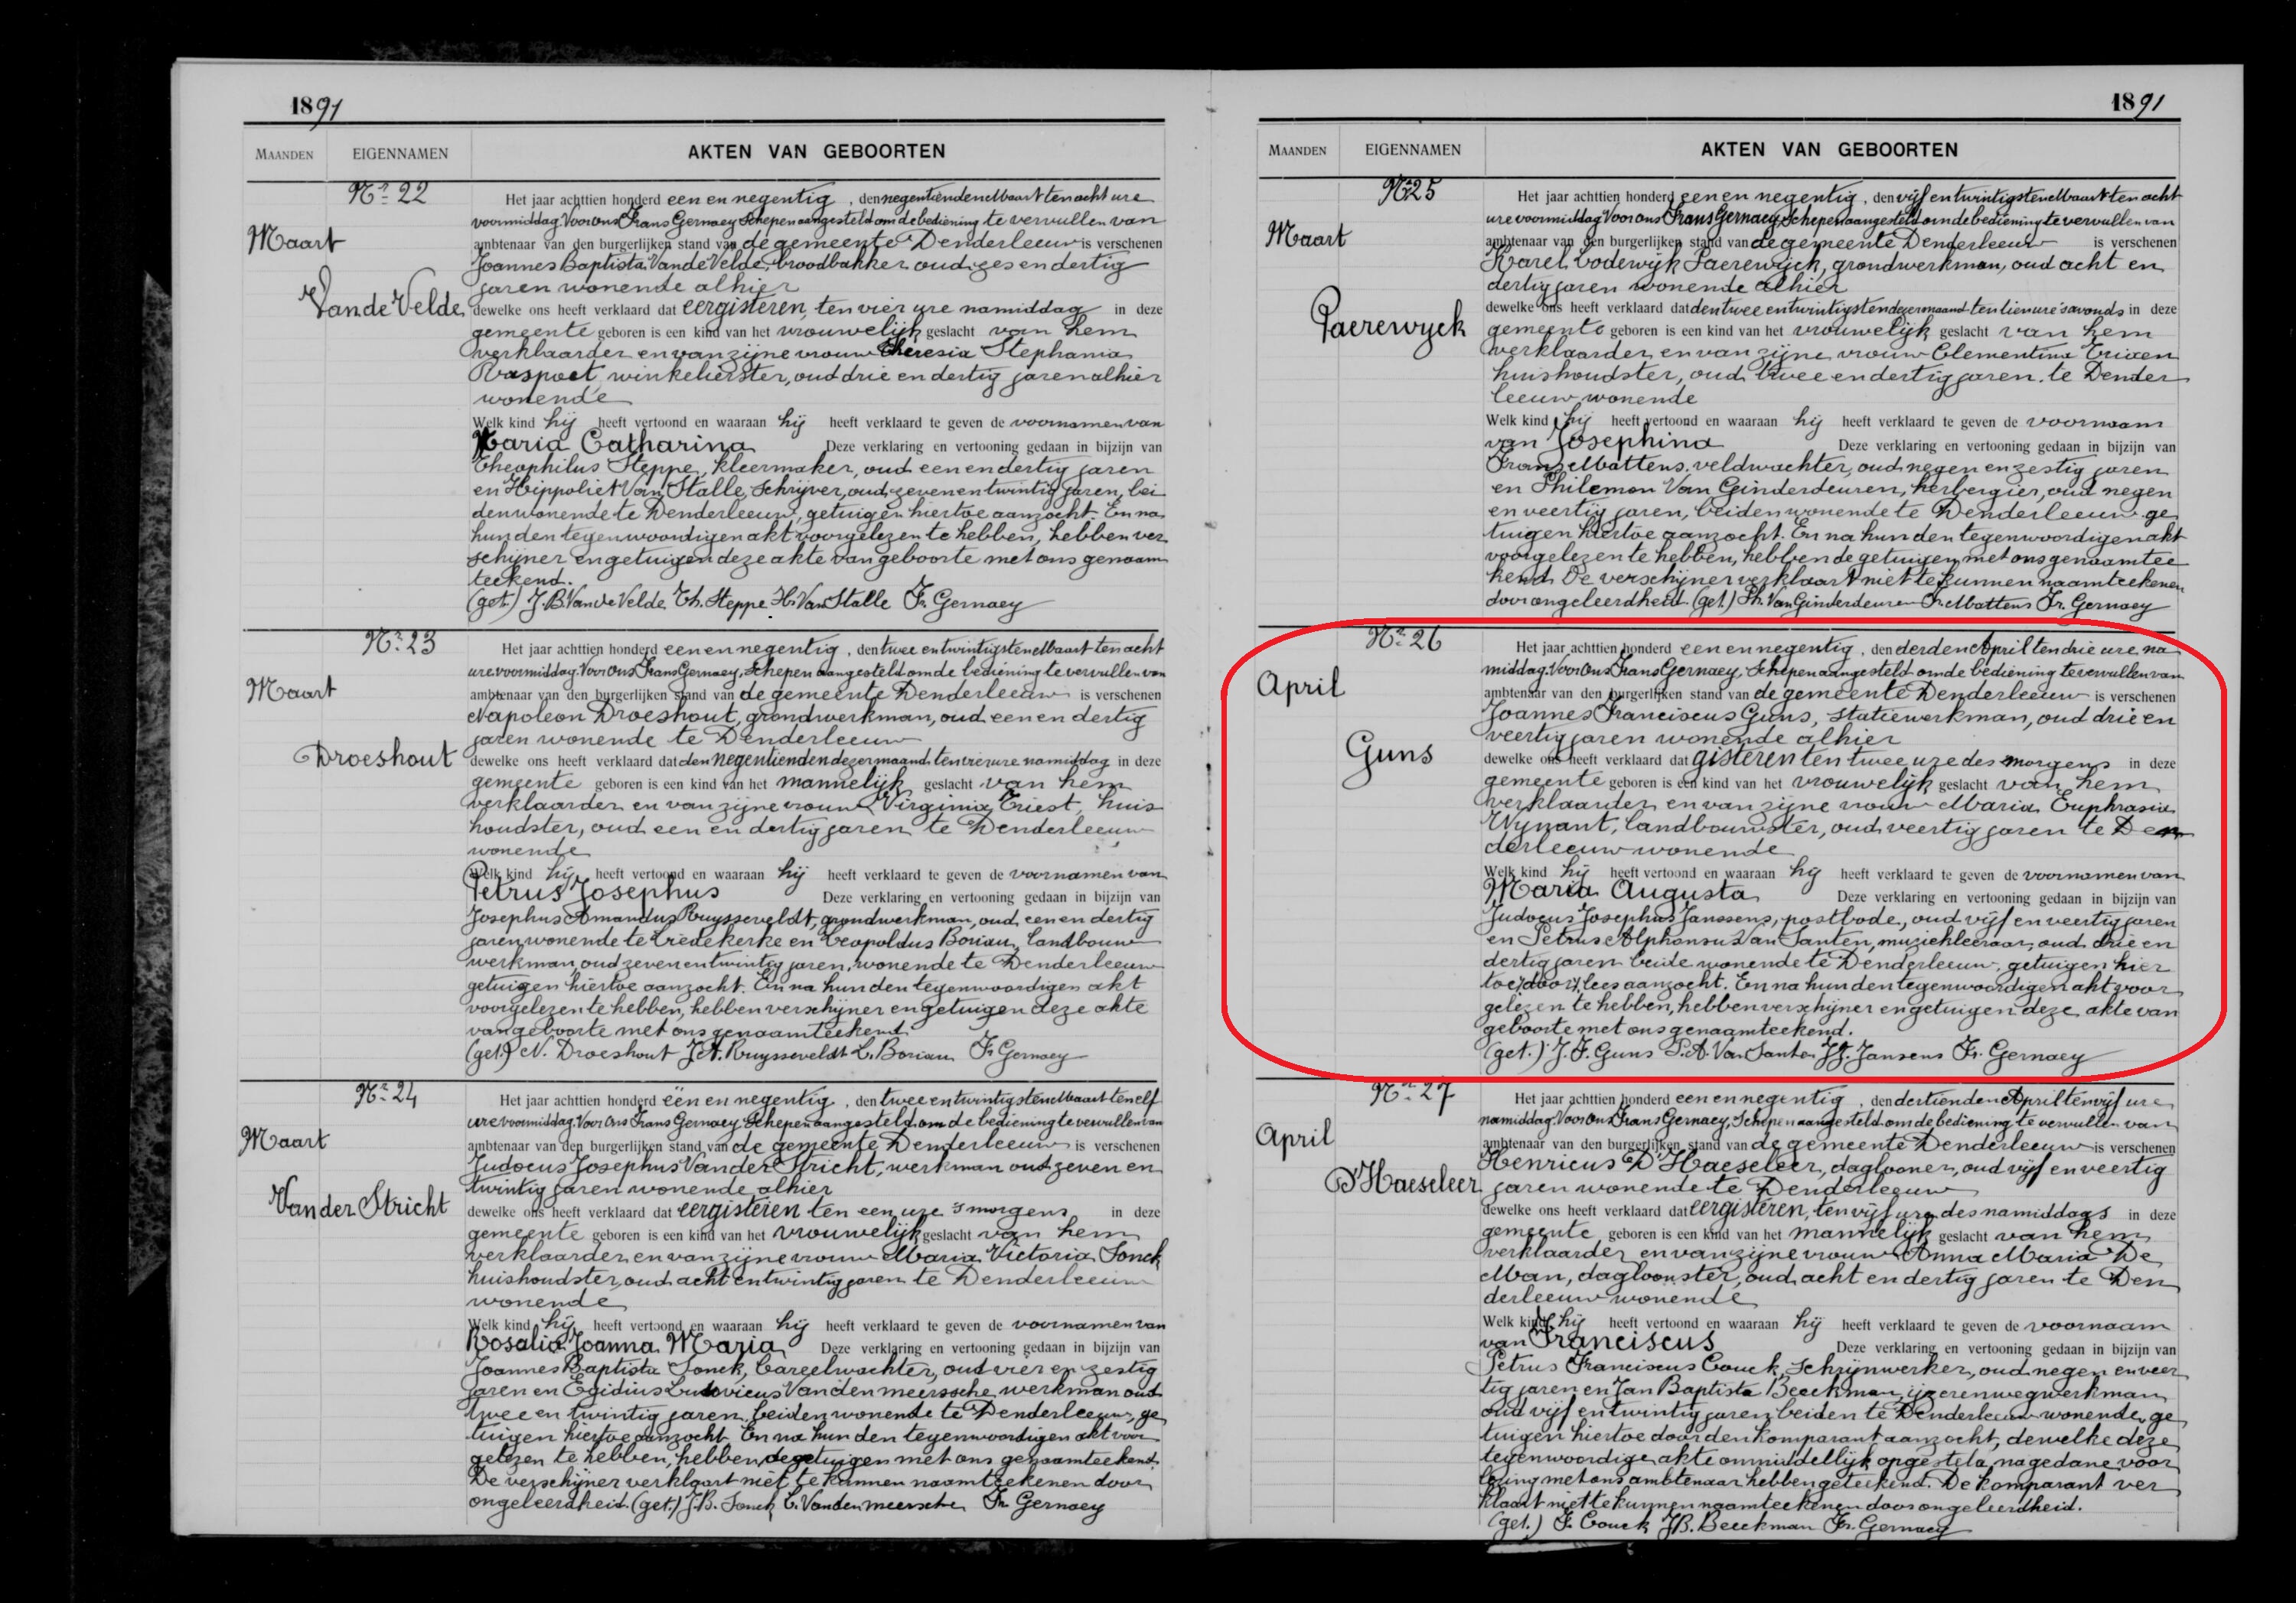 1891
MAANDEN EIGENNAMEN AKTEN VAN GEBOORTEN
Nr 22
Maart
Van de Velde
Het jaar achttien honderd een en negentig, den negentienden Maart ten acht ure
voormiddag Voor ons Frans Gernaey Schepen aangesteld om de bediening te vervullen van
ambtenaar van den burgerlijken stand van de gemeente Denderleeuw is verschenen
Joannes Baptista Van de Velde, broodbakker oud zes en dertig
jaren wonende alhier
dewelke ons heeft verklaard dat eergisteren, ten vier ure namiddag in deze
gemeente geboren is een kind van het vrouwelijk geslacht van hem
verklaarder en van zijne vrouw Theresia Stephania
Raspoet, winkelierster, oud drie en dertig jaren alhier
wonende
Welk kind hij heeft vertoond en waaraan hij heeft verklaard te geven de voornamen van
Maria Catharina Deze verklaring en vertooning gedaan in bijzijn van
Theophilus Steppe, kleermaker, oud een en dertig jaren
en Hippoliet Van Stalle, Schrijver, oud zeven en twintig jaren, bei
den wonende te Denderleeuw, getuigen hiertoe aanzocht. En na
hun den tegenwoordigen akt voorgelezen te hebben, hebben ver
schijner en getuigen deze akte van geboorte met ons genaam
teekend.
(get.) J.B. Van de Velde Th. Steppe H. Van Stalle Fr. Gernaey
Nr 23
Maart
Droeshout
Het jaar achttien honderd een en negentig, den twee en twintigsten Maart ten acht
ure voormiddag. Voor ons Frans Gernaey, Schepen aangesteld om de bediening te vervullen van
ambtenaar van den burgerlijken stand van de gemeente Denderleeuw is verschenen
Napoleon Droeshout, grondwerkman, oud een en dertig
jaren wonende te Denderleeuw
dewelke ons heeft verklaard dat den negentienden dezer maand ten vier ure namiddag in deze
gemeente geboren is een kind van het mannelijk geslacht van hem
verklaarder en van zijne vrouw Virginia Triest, huis
houdster, oud een en dertig jaren te Denderleeuw
wonende
Welk kind hij heeft vertoond en waaraan hij heeft verklaard te geven de voornamen van
Petrus Josephus Deze verklaring en vertooning gedaan in bijzijn van
Josephus Amandus Ruysseveldt, grondwerkman, oud een en dertig
jaren wonende te Liedekerke en Leopoldus Boriau, landbouw
werkman, oud zeven en twintig jaren, wonende te Denderleeuw
getuigen hiertoe aanzocht. En na hun den tegenwoordigen akt
voorgelezen te hebben, hebben verschijner en getuigen deze akte
van geboorte met ons genaamteekend
(get.) N. Droeshout J.A. Ruysseveldt L. Boriau Fr Gernaey
Nr 24
Maart
Van der Stricht
Het jaar achttien honderd een en negentig, den twee en twintigsten Maart ten elf
ure voormiddag. Voor ons Frans Gernaey, Schepen aangesteld om de bediening te vervullen van
ambtenaar van den burgerlijken stand van de gemeente Denderleeuw is verschenen
Judocus Josephus Van der Stricht, werkman oud zeven en
twintig jaren wonende alhier
dewelke ons heeft verklaard dat eergisteren ten een ure 's morgens in deze
gemeente geboren is een kind van het vrouwelijk geslacht van hem
verklaarder en van zijne vrouw Maria Victoria Sonck
huishoudster, oud acht en twintig jaren te Denderleeuw
wonende
Welk kind hij heeft vertoond en waaraan hij heeft verklaard te geven de voornamen van
Rosalia Joanna Maria Deze verklaring en vertooning gedaan in bijzijn van
Joannes Baptista Sonck, bareelwachter, oud vier en zestig
jaren en Egidius Ludovicus Vanden meerssche werkman oud
twee en twintig jaren, beiden wonende te Denderleeuw, ge
tuigen hiertoe aanzocht En na hun den tegenwoordigen akt voor
gelezen te hebben, hebben de getuigen met ons genaamteekend.
De verschijner verklaart niet te kunnen naamteekenen door
ongeleerdheid. (get.) J.B. Sonck L. Vanden meersche Fr Gernaey
1891
MAANDEN EIGENNAMEN AKTEN VAN GEBOORTEN
Nr 25
Maart
Paerewyck
Het jaar achttien honderd een en negentig, den vijf en twintigsten Maart ten acht
ure voormiddag Voor ons Frans Gernaey, Schepen aangesteld om de bediening te vervullen van
ambtenaar van den burgerlijken stand van de gemeente Denderleeuw is verschenen
Karel Lodewijk Paerewijck, grondwerkman, oud acht en
dertig jaren wonende alhier
dewelke ons heeft verklaard dat den twee en twintigsten dezer maand ten tien ure 's avonds in deze
gemeente geboren is een kind van het vrouwelijk geslacht van hem
verklaarder en van zijne vrouw Clementina
huishoudster, oud twee en dertig jaren te Dender
leeuw wonende
Welk kind hij heeft vertoond en waaraan hij heeft verklaard te geven de voornaam
van Josephina Deze verklaring en vertooning gedaan in bijzijn van
Frans Mattens, veldwachter, oud negen en zestig jaren
en Philemon Van Ginderdeuren, herbergier, oud negen
en veertig jaren, beiden wonende te Denderleeuw ge
tuigen hiertoe aanzocht. En na hun den tegenwoordigen akt
voorgelezen te hebben, hebben de getuigen met ons genaamtee
kend. De verschijner verklaart niet te kunnen naamteekenen
door ongeleerdheid (get.) Ph. Van Ginderdeuren Fr. Mattens Fr. Gernaey
Nr 26
April
Guns
Het jaar achttien honderd een en negentig, den derden April ten drie ure na
middag. Voor ons Frans Gernaey, Schepen aangesteld om de bediening te vervullen van
ambtenaar van den burgerlijken stand van de gemeente Denderleeuw is verschenen
Joannes Franciscus Guns, statiewerkman, oud drie en
veertig jaren wonende alhier
dewelke ons heeft verklaard dat gisteren ten twee ure des morgens in deze
gemeente geboren is een kind van het vrouwelijk geslacht van hem
verklaarder en van zijne vrouw Maria Euphrasia
Wynant, landbouwster, oud veertig jaren te Den
derleeuw wonende
Welk kind hij heeft vertoond en waaraan hij heeft verklaard te geven de voornamen van
Maria Augusta Deze verklaring en vertooning gedaan in bijzijn van
Judocus Josephus Janssens, postbode, oud vijf en veertig jaren
en Petrus Alphonsus Van Santen, muziekleeraar, oud drie en
dertig jaren beide wonende te Denderleeuw, getuigen hier
toe aanzocht. En na hun den tegenwoordigen akt voor
gelezen te hebben, hebben verschijner en getuigen deze akte van
geboorte met ons genaamteekend.
(get.) J.F. Guns P.A. Van Santen J.J. Jansens Fr. Gernaey
Nr 27
April
D'Haeseleer
Het jaar achttien honderd een en negentig, den dertienden April ten vijf ure
namiddag. Voor ons Frans Gernaey, Schepen aangesteld om de bediening te vervullen van
ambtenaar van den burgerlijken stand van de gemeente Denderleeuw is verschenen
Henricus D'Haeseleer, daglooner, oud vijf en veertig
jaren wonende te Denderleeuw
dewelke ons heeft verklaard dat eergisteren, ten vijf ure des namiddags in deze
gemeente geboren is een kind van het mannelijk geslacht van hem
verklaarder en van zijne vrouw Anna Maria De
Man, dagloonster, oud acht en dertig jaren te Den
derleeuw wonende
Welk kind hij heeft vertoond en waaraan hij heeft verklaard te geven de voornaam
van Franciscus Deze verklaring en vertooning gedaan in bijzijn van
Petrus Franciscus Couck, schrijnwerker, oud negen en veer
tig jaren en Jan Baptista Beeckman, ijzerenwegwerkman
oud vijf en twintig jaren beiden te Denderleeuw wonende, ge
tuigen hiertoe door den komparant aanzocht, dewelke deze
tegenwoordige akte onmiddellijk opgesteld, na gedane voor
lezing met ons ambtenaar hebben geteekend. De komparant ver
klaart niet te kunnen naamteekenen door ongeleerdheid.
(get.) F. Couck J.B. Beeckman Fr. Gernaey